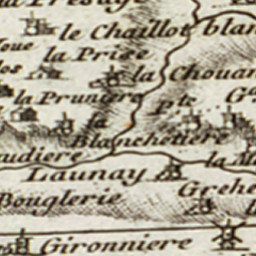 le Chaillot
blan
la Prise
la Chouan
la Pruniere
pte
la
Blanchetiere
audiere
la M
Launay
Grehe
Bouglerie
la
Gironniere